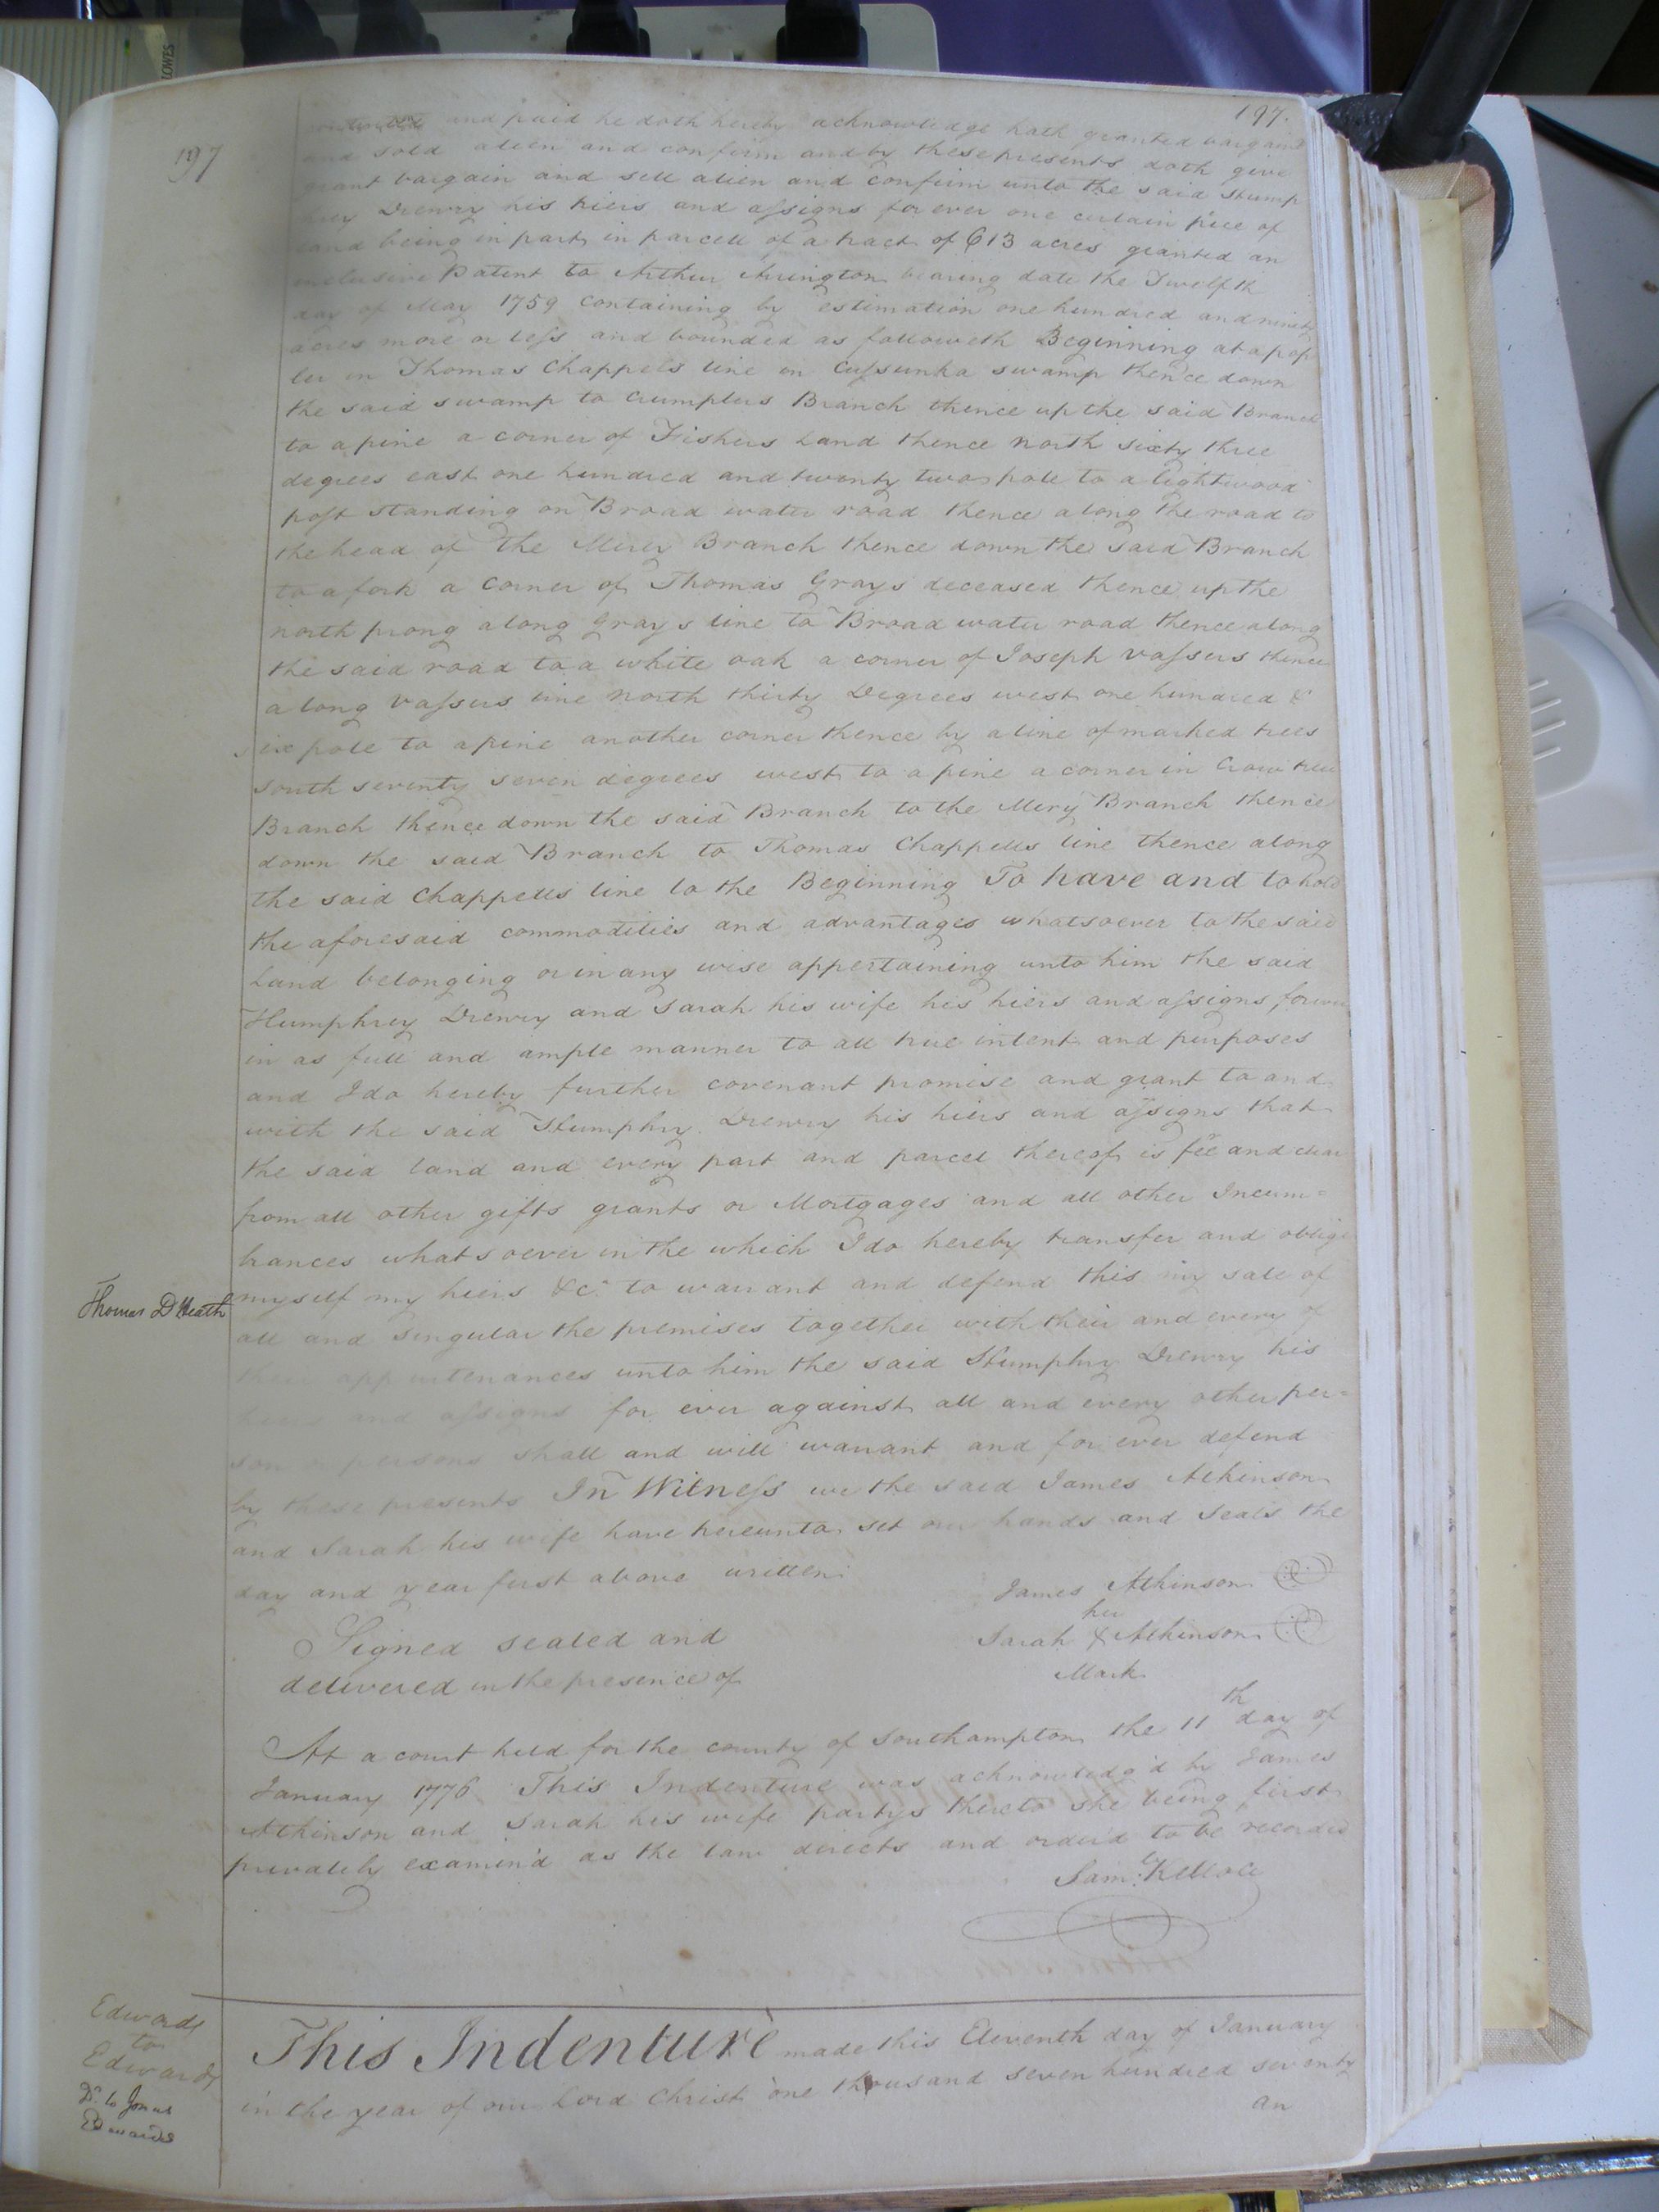 LOWES
197.
197
and paid he doth hereby acknowledge hath granted bargain'd
and sold alien and confirm and by these presents doth give
grant bargain and sell alien and confirm unto the said Hump
hrey Drewry his hiers and assigns for ever one certain piece of
Land being in part, in parcell of a tract of 613 acres granted an
inclusive Patent to Arthur Arington bearing date the Twelfth
day of May 1759 Containing by estimation one hundred and ninety
acres more or less and bounded as followeth Beginning at a pop
ler in Thomas Chappels line in Cussunka swamp thence down
the said swamp to Crumplers Branch thence up the said Branch
to a pine a corner of Fishers Land thence North sixty three
degrees east one hundred and twenty two pole to a lightwood
post standing on Broad water road thence along the road to
the head of the Mirey Branch thence down the said Branch
to a fork a Corner of Thomas Grays deceased thence up the
north prong along Grays line to Broad water road thence along
the said road to a white oak a corner of Joseph Vassers thence
along Vassers line North thirty Degrees west one hundred &
six pole to a pine another corner thence by a line of marked trees
south seventy seven degrees west to a pine a corner in Crow tree
Branch thence down the said Branch to the Mery Branch thence
down the said Branch to Thomas Chappells line thence along
the said Chappells line to the Beginning To have and to hold
the aforesaid commodities and advantages whatsoever to the said
Land belonging or in any wise appertaining unto him the said
Humphrey Drewry and Sarah his wife his hiers and assigns forever
in as full and ample manner to all true intent and purposes
and I do hereby further covenant promise and grant to and
with the said Humphry Drewry his hiers and assigns that
the said land and every part and parcel thereof is fee and clear
from all other gifts grants or Mortgages and all other Incum=
brances whatsoever in the which I do hereby transfer and oblige
Thomas D Heath
myself my hiers &c. to warrant and defend this my sale of
all and singular the premises together with their and every of
their appurtenances unto him the said Humphry Drewry his
hiers and assigns for ever against all and every other per=
son or persons shall and will warrant and for ever defend
by these presents In Witness we the said James Atkinson
and Sarah his wife have hereunto set our hands and seals the
day and year first above written.
James Atkinson
her
Sarah X Atkinson
Mark
Signed sealed and
delivered in the presence of
At a court held for the county of Southampton the 11th day of
January 1776 This Indenture was acknowledg'd by James
Atkinson and Sarah his wife partys thereto she being first
privately examin'd as the law directs and order'd to be recorded
Saml. Kello CC
Edwards
to
Edwards
Do. to Jonas
Edwards
This Indenture made this Eleventh day of January
in the year of our Lord Christ one thousand seven hundred seventy
an